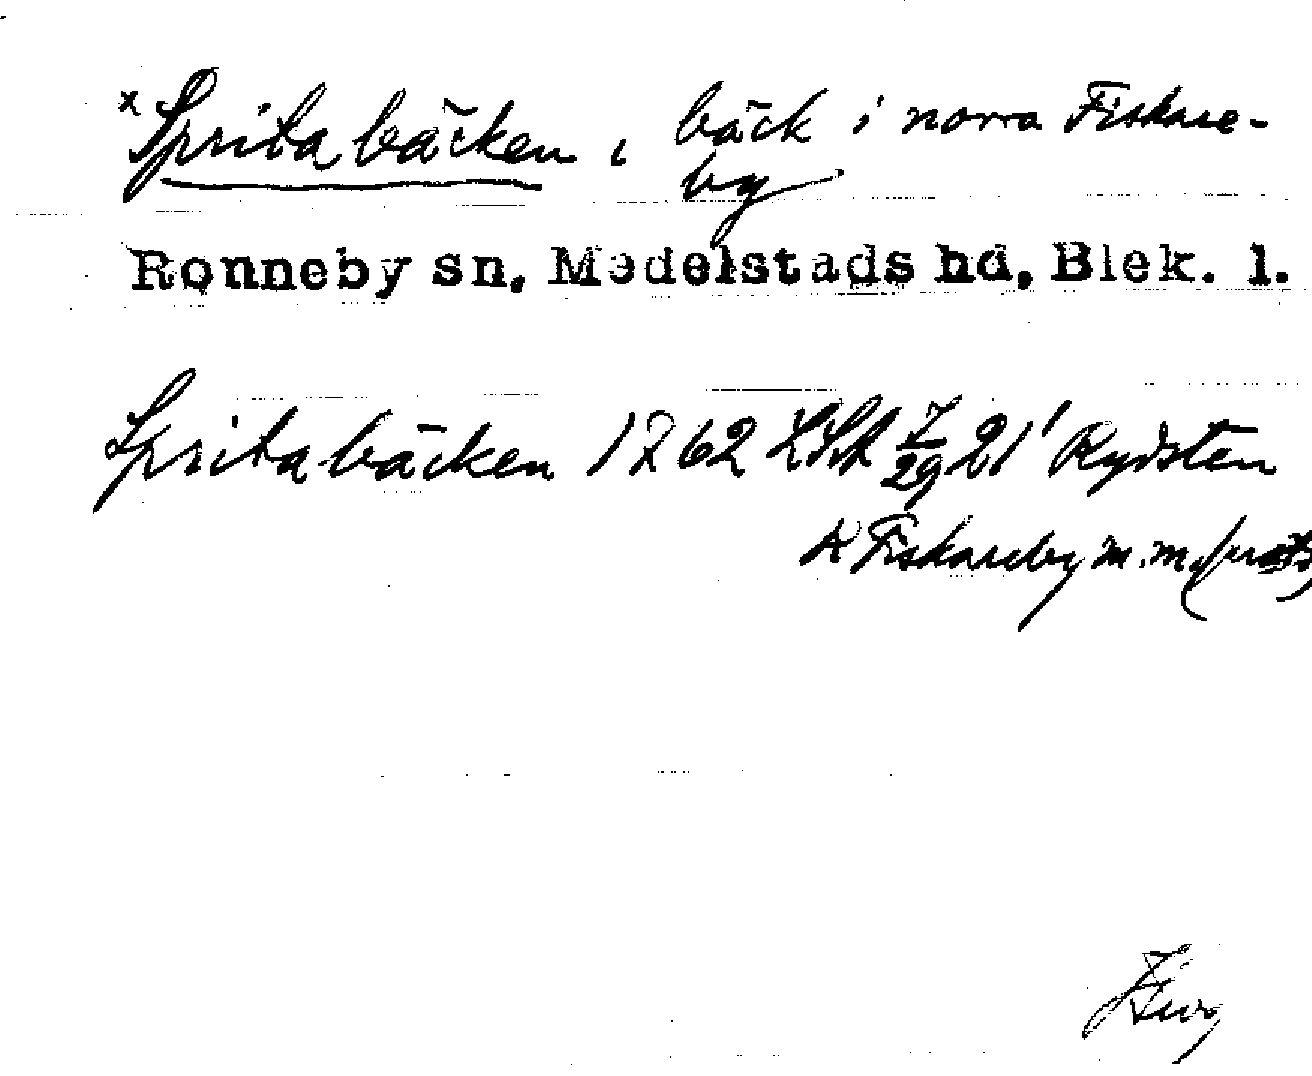 x Spritabäcken, bäck i norra Fiskare-
by
Ronneby sn, Medelstads hd, Blek. l.
Spritabäcken 1762 LSA 7/29 21' Rydsten
K Fiskareby m.m.